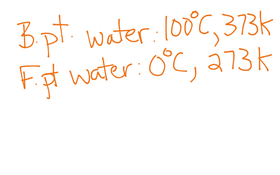 B.pt. water: 100°C, 373k
F.pt water: 0°C, 273k